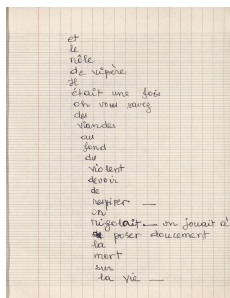 et
le
rôle
de vipère
Il
était une fois
oh vous savez
des
viandes
au
fond
du
violent
devoir
de
respirer —
on
rigolait — on jouait à
poser doucement
la
mort
sur
la vie —